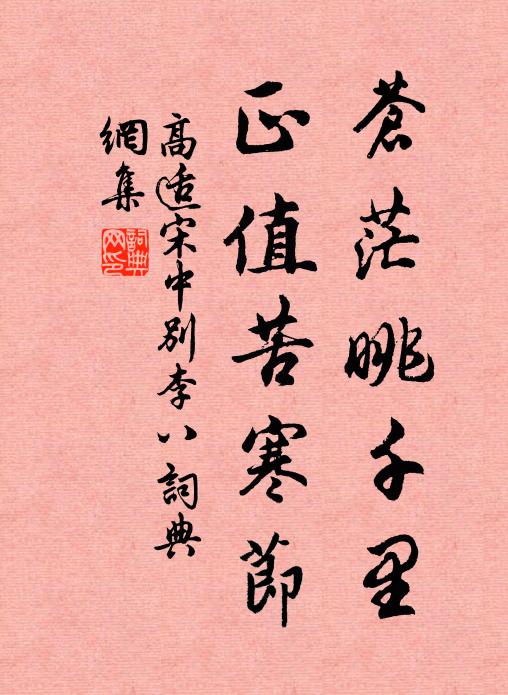 蒼茫眺千里
正值苦寒節
高适宋中別李八詞典
網集
詞典網印